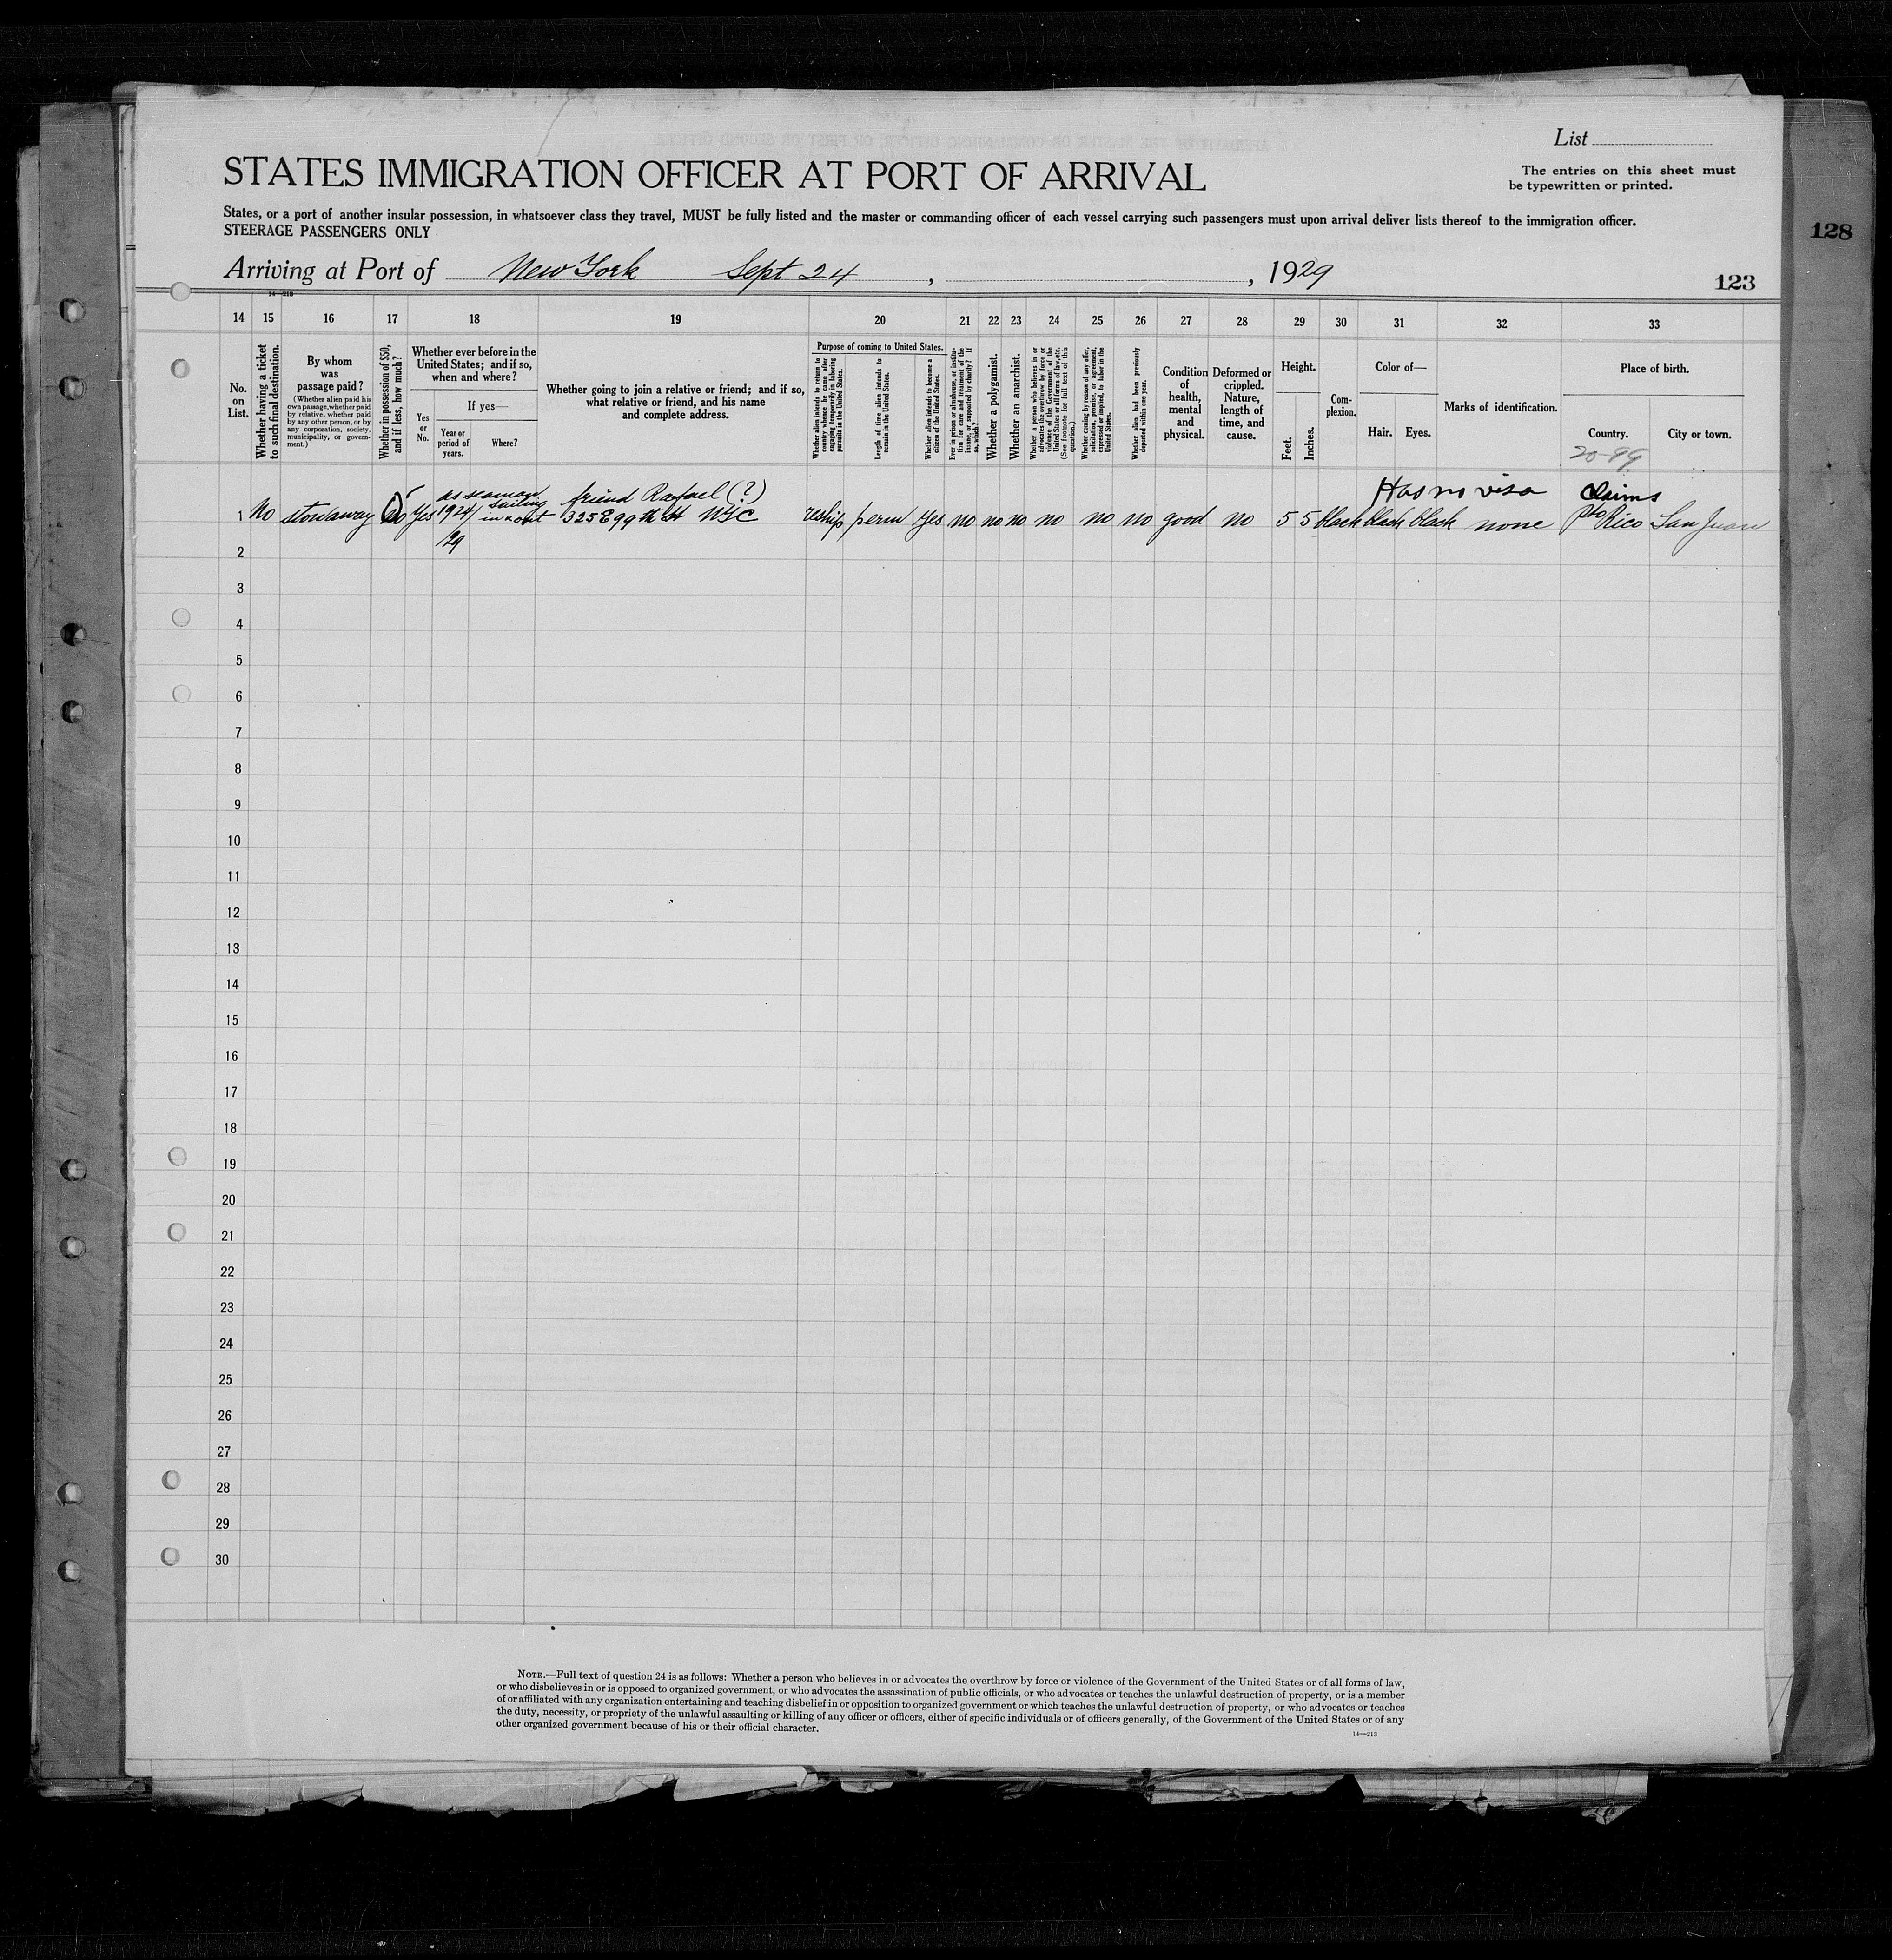 List
STATES IMMIGRATION OFFICER AT PORT OF ARRIVAL
The entries on this sheet must
be typewritten or printed.
States, or a port of another insular possession, in whatsoever class they travel, MUST be fully listed and the master or commanding officer of each vessel carrying such passengers must upon arrival deliver lists thereof to the immigration officer.
STEERAGE PASSENGERS ONLY
128
Arriving at Port of New York Sept 24, , 1929
123
14—213
14 15 16 17 18 19 20 21 22 23 24 25 26 27 28 29 30 31 32 33
No.
on
List.
Whether having a ticket
to such final destination.
By whom
was
passage paid?
(Whether alien paid his
own passage, whether paid
by relative, whether paid
by any other person, or by
any corporation, society,
municipality, or govern-
ment.)
Whether in possession of $50,
and if less, how much?
Whether ever before in the
United States; and if so,
when and where?
Yes
or
No.
If yes—
Year or
period of
years.
Where?
Whether going to join a relative or friend; and if so,
what relative or friend, and his name
and complete address.
Purpose of coming to United States.
Whether alien intends to return to
country whence he came after
engaging temporarily in laboring
pursuits in the United States.
Length of time alien intends to
remain in the United States.
Whether alien intends to become a
citizen of the United States.
Ever in prison or almshouse, or institu-
tion for care and treatment of the
insane, or supported by charity? If
so, which?
Whether a polygamist.
Whether an anarchist.
Whether a person who believes in or
advocates the overthrow by force or
violence of the Government of the
United States or all forms of law, etc.
(See footnote for full text of this
question.)
Whether coming by reason of any offer,
solicitation, promise, or agreement,
expressed or implied, to labor in the
United States.
Whether alien had been previously
deported within one year.
Condition
of
health,
mental
and
physical.
Deformed or
crippled.
Nature,
length of
time, and
cause.
Height.
Feet.
Inches.
Com-
plexion.
Color of—
Hair. Eyes.
Marks of identification.
Place of birth.
Country. City or town.
20-99
as seaman
sailing
friend Rafael (?)
Has no visa
Claims
1 No stowaway No Yes 1924/ in & out 325 E 99th St NYC reship perm Yes no no no no no no good no 5 5 black black black none Pto Rico San Juan
29
2
3
4
5
6
7
8
9
10
11
12
13
14
15
16
17
18
19
20
21
22
23
24
25
26
27
28
29
30
NOTE.—Full text of question 24 is as follows: Whether a person who believes in or advocates the overthrow by force or violence of the Government of the United States or of all forms of law,
or who disbelieves in or is opposed to organized government, or who advocates the assassination of public officials, or who advocates or teaches the unlawful destruction of property, or is a member
of or affiliated with any organization entertaining and teaching disbelief in or opposition to organized government or which teaches the unlawful destruction of property, or who advocates or teaches
the duty, necessity, or propriety of the unlawful assaulting or killing of any officer or officers, either of specific individuals or of officers generally, of the Government of the United States or of any
other organized government because of his or their official character.
14—213